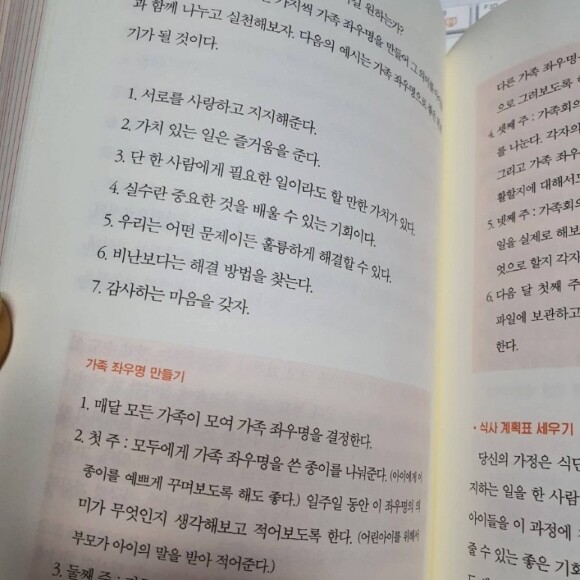 가지씩 가족 좌우명을 만들어 그
과 함께 나누고 실천해보자. 다음의 예시는 가족 좌우명으로
기가 될 것이다.
1. 서로를 사랑하고 지지해준다.
2. 가치 있는 일은 즐거움을 준다.
3. 단 한 사람에게 필요한 일이라도 할 만한 가치가 있다.
4. 실수란 중요한 것을 배울 수 있는 기회이다.
5. 우리는 어떤 문제이든 훌륭하게 해결할 수 있다.
6. 비난보다는 해결 방법을 찾는다.
7. 감사하는 마음을 갖자.
가족 좌우명 만들기
1. 매달 모든 가족이 모여 가족 좌우명을 결정한다.
2. 첫 주 : 모두에게 가족 좌우명을 쓴 종이를 나눠준다. (아이에게 이
종이를 예쁘게 꾸며보도록 해도 좋다.) 일주일 동안 이 좌우명의 의
미가 무엇인지 생각해보고 적어보도록 한다. (어린아이를 위해서
부모가 아이의 말을 받아 적어준다.)
3. 둘째 주 :
다른 가족 좌우명
으로 그려보도록
4. 셋째 주 : 가족회의
를 나눈다. 각자의
그리고 가족 좌우
활할지에 대해서도
5. 넷째 주 : 가족회의
일을 실제로 해보
엇으로 할지 각자
6. 다음 달 첫째 주
파일에 보관하고
한다.
• 식사 계획표 세우기
당신의 가정은 식단
지하는 일을 한 사람
아이들을 이 과정에
줄 수 있는 좋은 기회